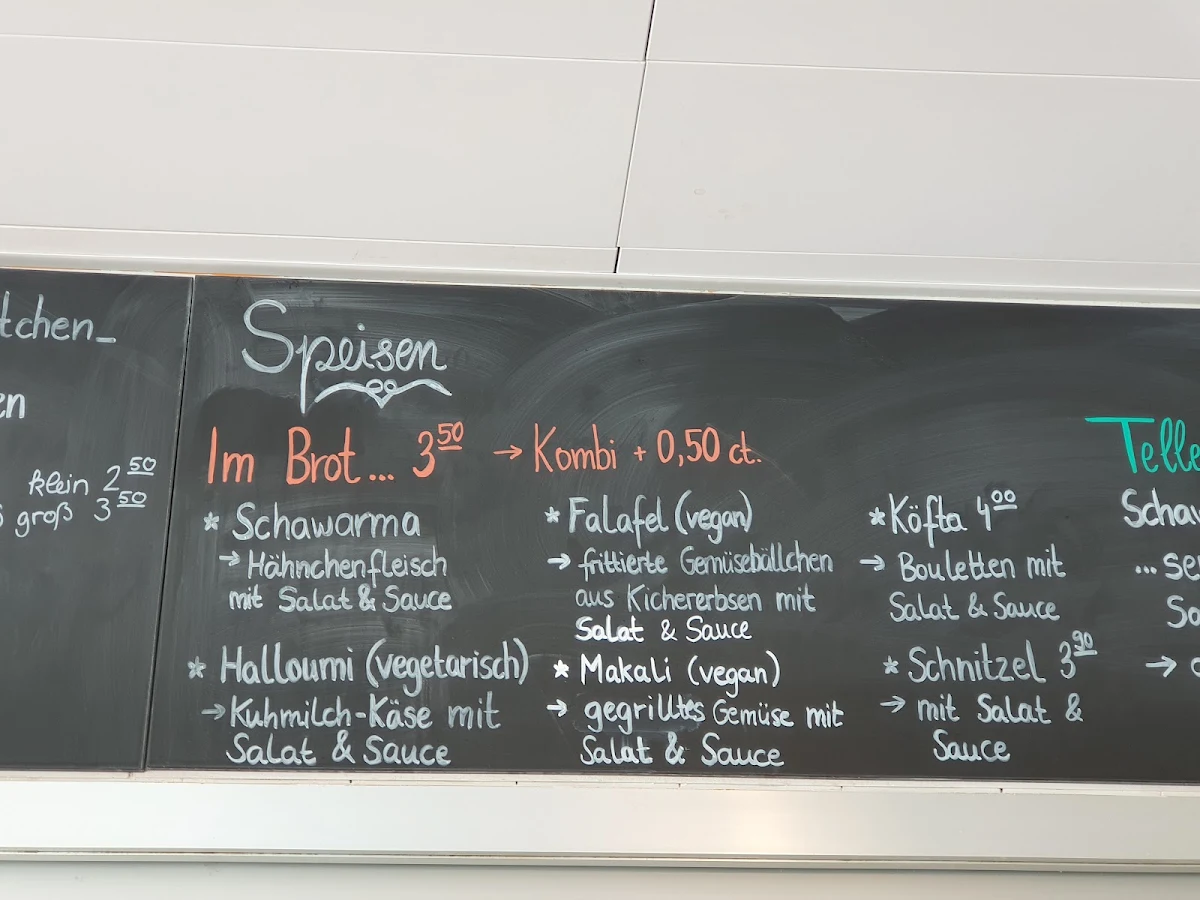 klein 2 50
groß 3 50
Speisen
Im Brot... 3 50 → Kombi + 0,50 ct.
* Schawarma
→ Hähnchenfleisch
mit Salat & Sauce
* Halloumi (vegetarisch)
→ Kuhmilch-Käse mit
Salat & Sauce
* Falafel (vegan)
→ frittierte Gemüsebällchen
aus Kichererbsen mit
Salat & Sauce
* Makali (vegan)
→ gegrilltes Gemüse mit
Salat & Sauce
* Köfta 4 00
→ Bouletten mit
Salat & Sauce
* Schnitzel 3 90
→ mit Salat &
Sauce